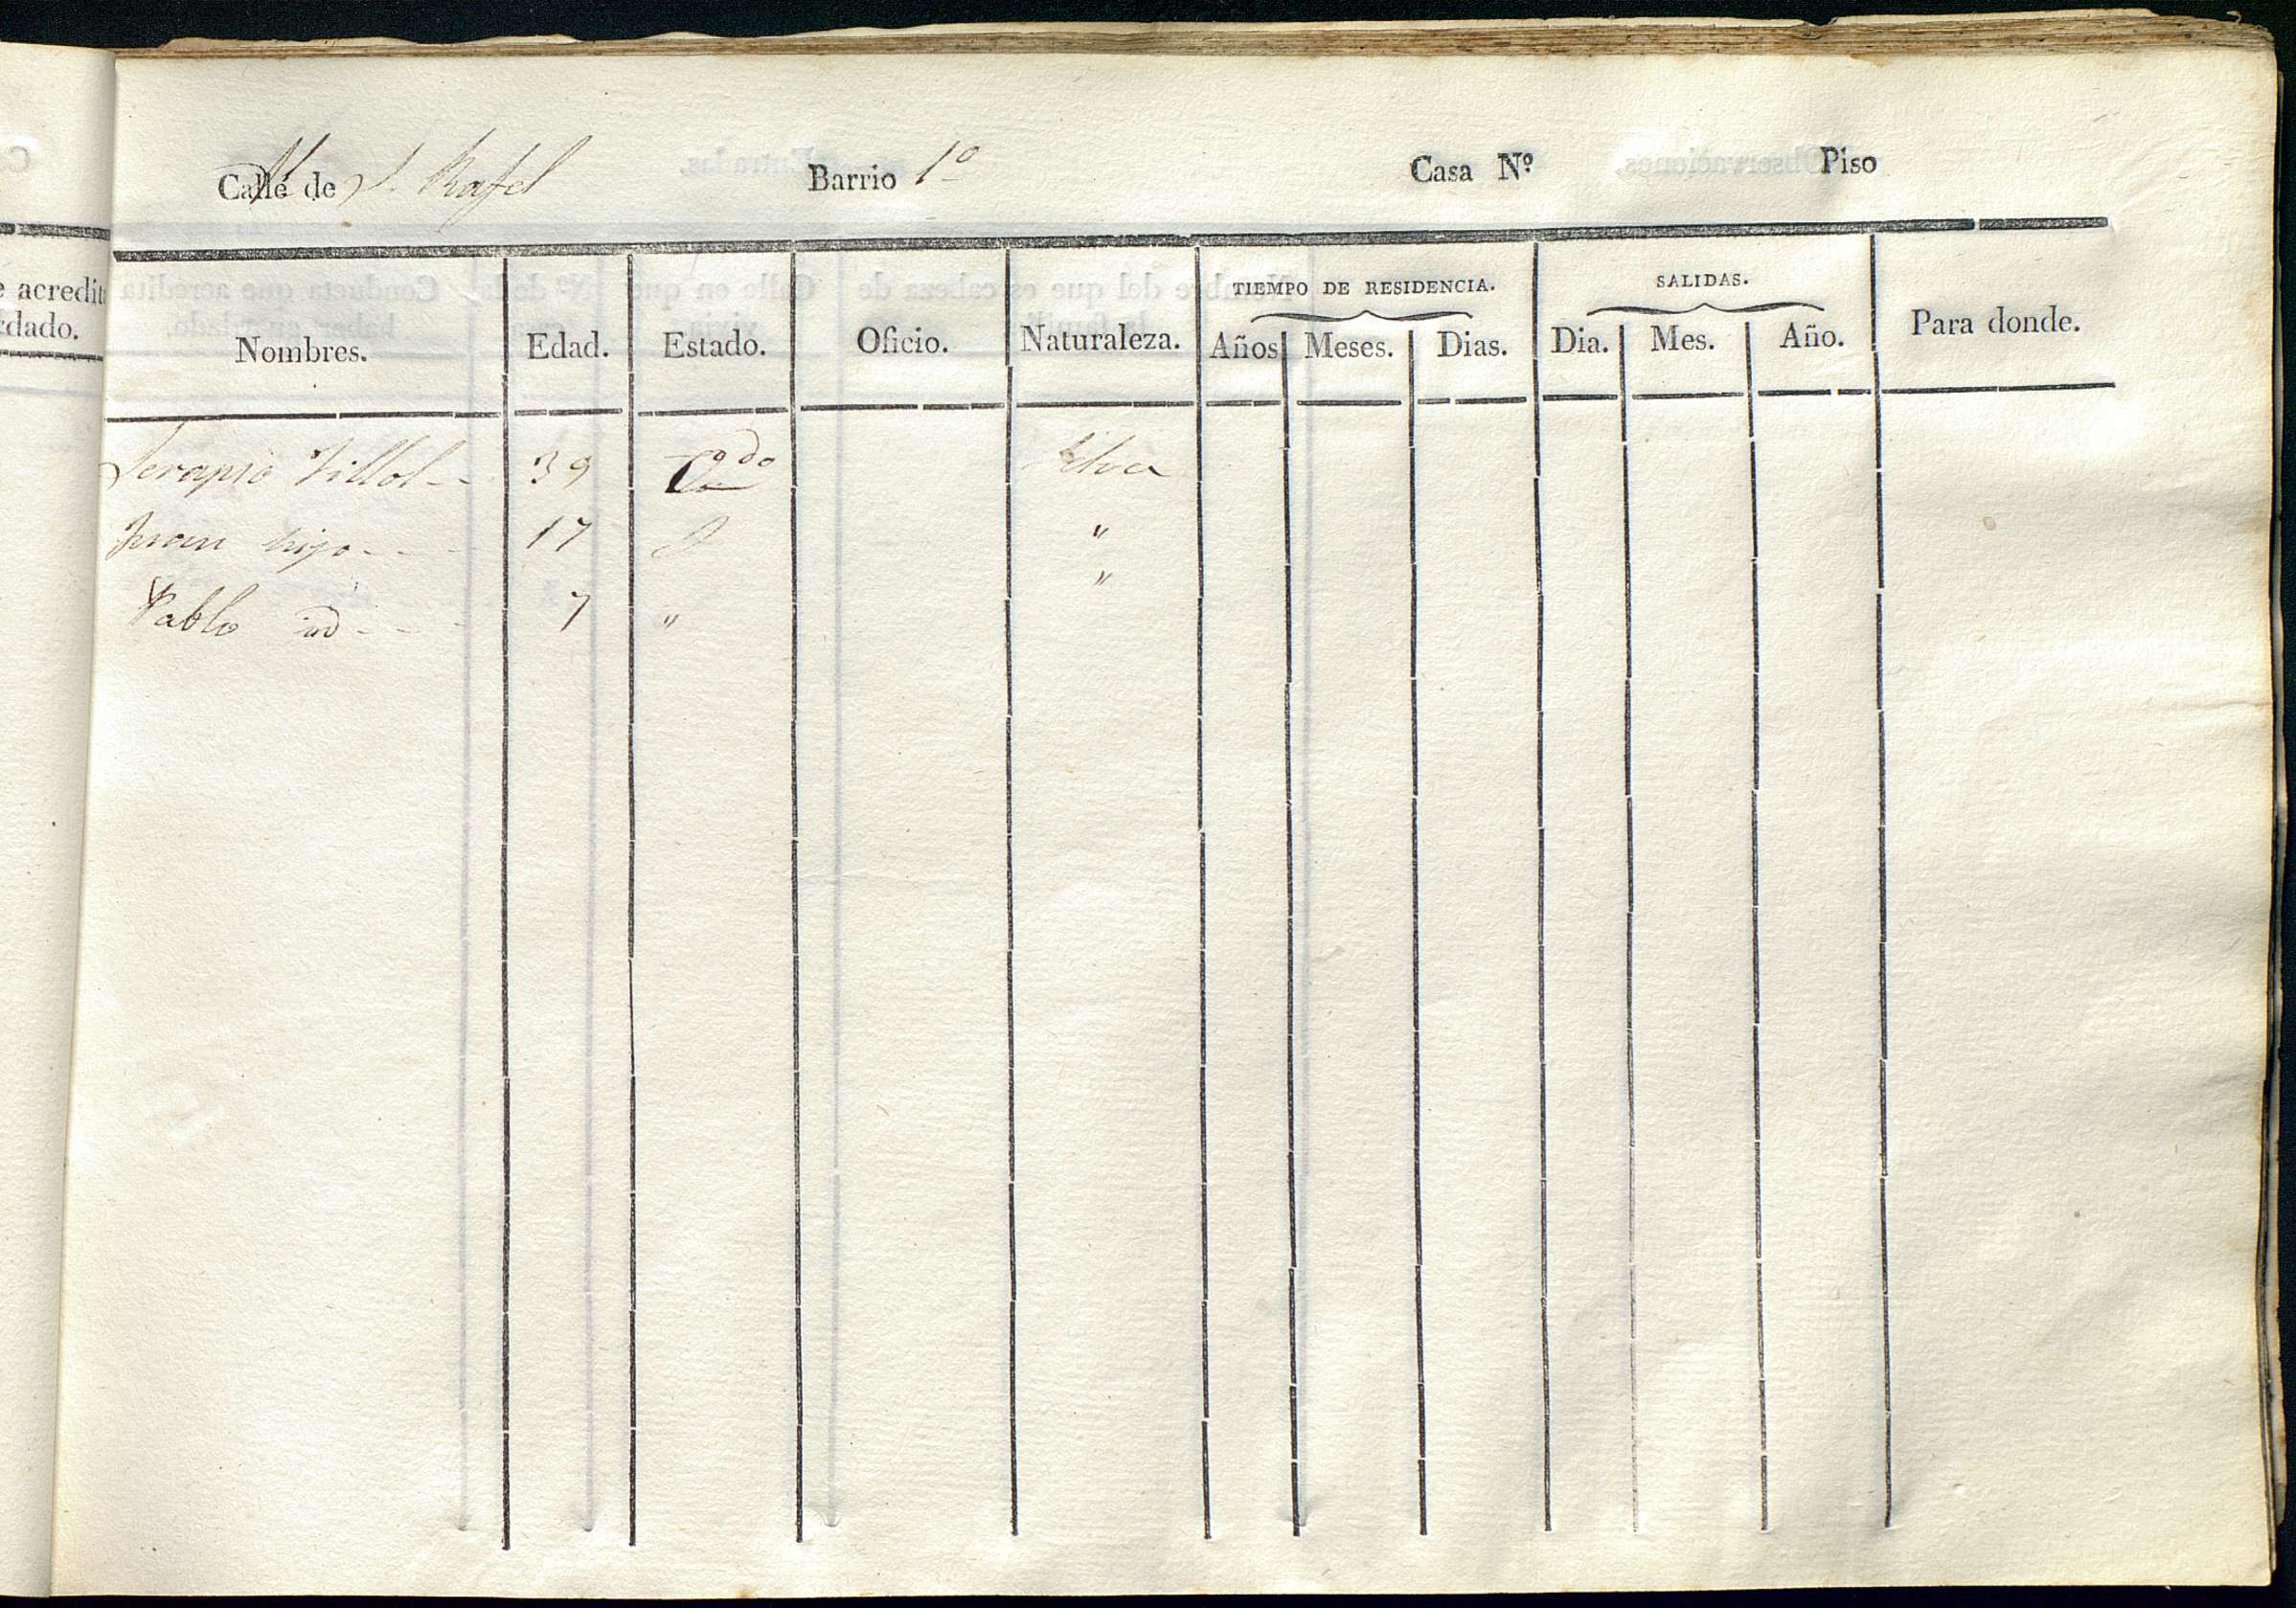 Calle de S. Rafel Barrio 1º Casa Nº Piso
e acredit
rdado.
TIEMPO DE RESIDENCIA. SALIDAS.
Nombres. Edad. Estado. Oficio. Naturaleza. Años Meses. Dias. Dia. Mes. Año. Para donde.
Serapio Villol - - 39 C.do
Juan hijo - - - 17 S "
Pablo id - - - 7 " "